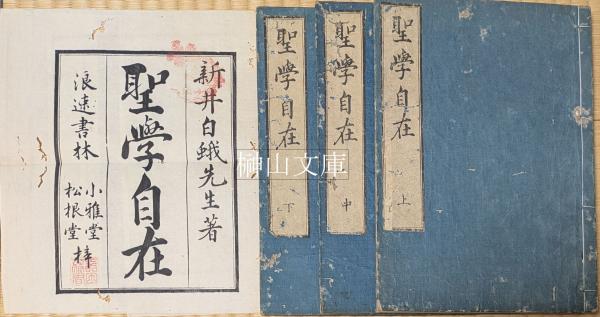 新井白蛾先生著
聖學自在
浪速書林
小雅堂
松根堂
梓
聖學自在
上
聖學自在
中
聖學自在
下
榊山文庫